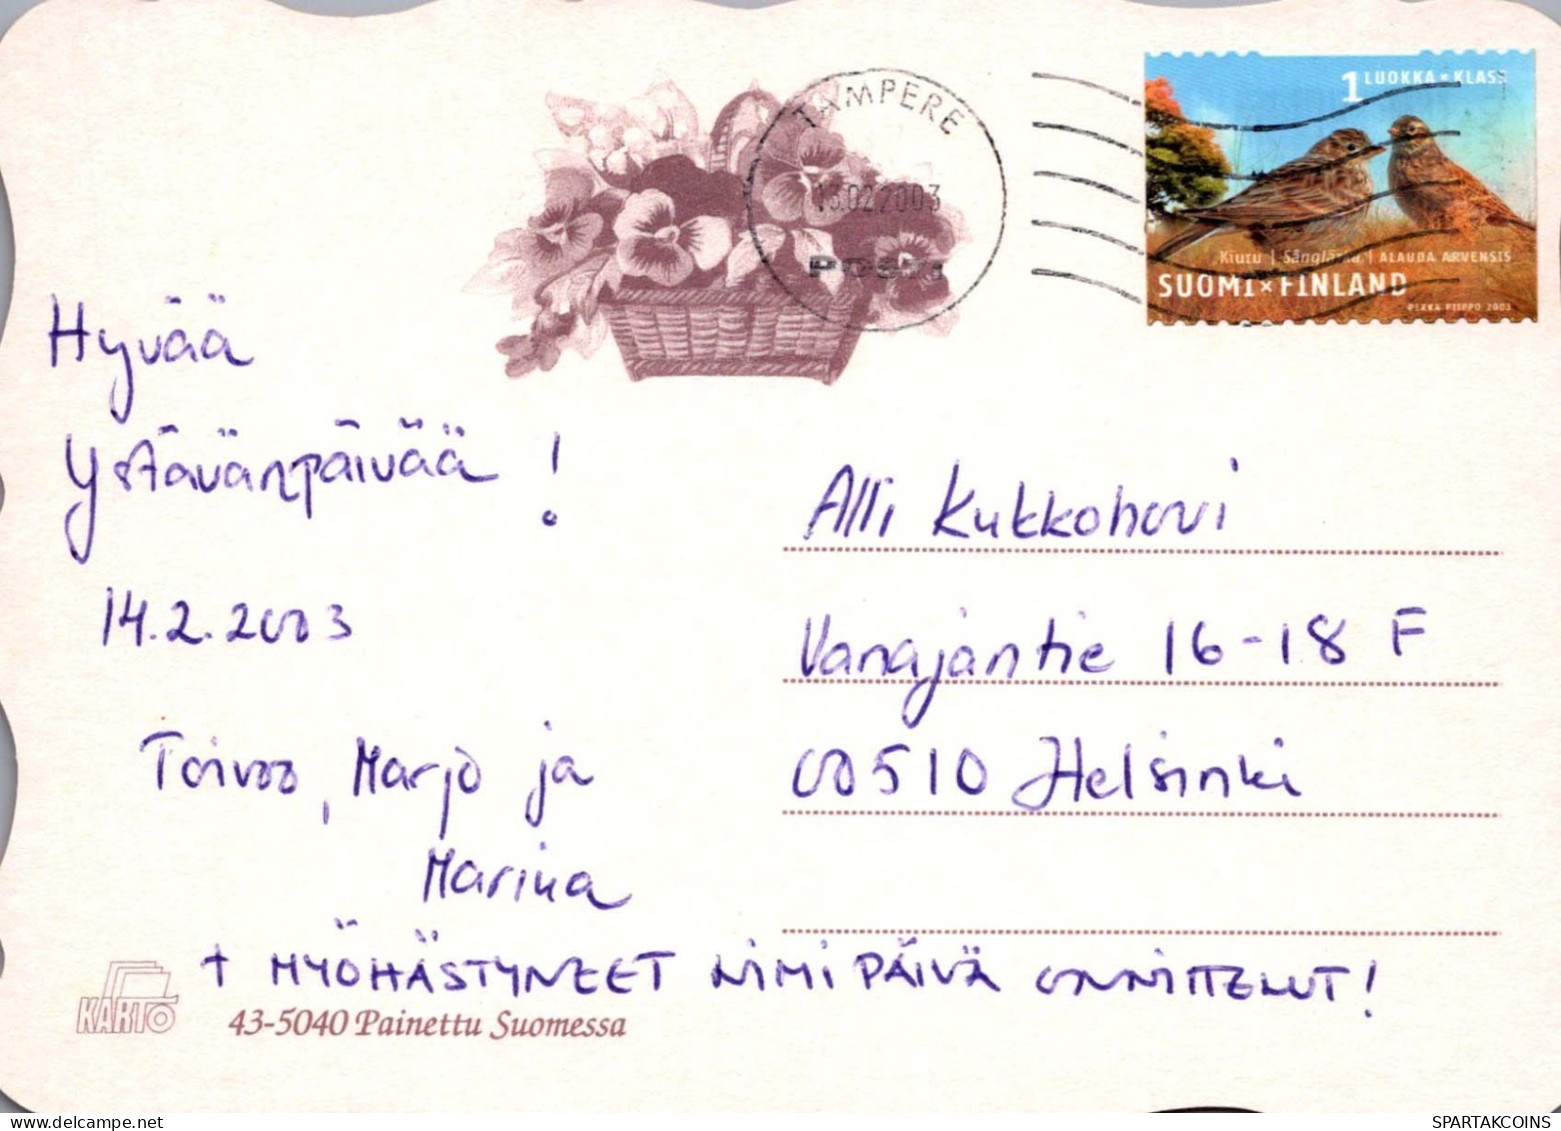 TAMPERE
13.02.2003
POSTI
1 LUOKKA × KLASS
Kiuru | Sånglärka | ALAUDA ARVENSIS
SUOMI × FINLAND
PEKKA PIIPPO 2003
Hyvää
Ystävänpäivää!
14.2.2003
Toivoo, Marjo ja
Marina
+ MYÖHÄSTYNEET NIMIPÄIVÄ ONNITTELUT!
Alli Kukkohovi
Vanajantie 16-18 F
00510 Helsinki
KARTO
43-5040 Painettu Suomessa
delcampe.net
SPARTAKCOINS